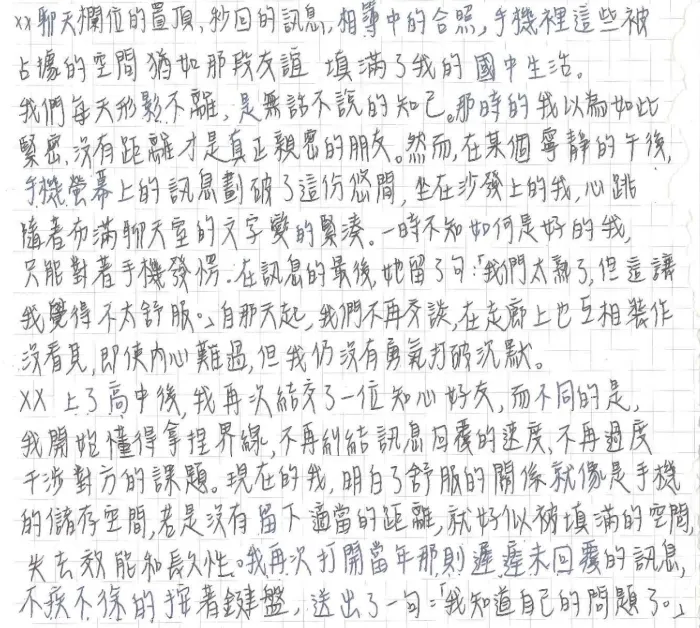 ××聊天欄位的置頂,秒回的訊息,相簿中的合照,手機裡這些被
占據的空間猶如那段友誼 填滿了我的國中生活。
我們每天形影不離,是無話不說的知己。那時的我以為如此
緊密,沒有距離才是真正親密的朋友。然而,在某個寧靜的午後,
手機螢幕上的訊息劃破了這份悠閒,坐在沙發上的我,心跳
隨著布滿聊天室的文字變的緊湊。一時不知如何是好的我,
只能對著手機發愣.在訊息的最後,她留了句:「我們太熟了,但這讓
我覺得不太舒服。」自那天起,我們不再交談,在走廊上也互相裝作
沒看見,即使內心難過,但我仍沒有勇氣打破沉默。
×× 上了高中後,我再次結交了一位知心好友,而不同的是,
我開始懂得拿捏界線,不再糾結訊息回覆的速度、不再過度
干涉對方的課題。現在的我,明白了舒服的關係就像是手機
的儲存空間,若是沒有留下適當的距離,就好似被填滿的空間,
失去效能和長久性。我再次打開當年那則遲遲未回覆的訊息,
不疾不徐的按著鍵盤,送出了一句:「我知道自己的問題了。」